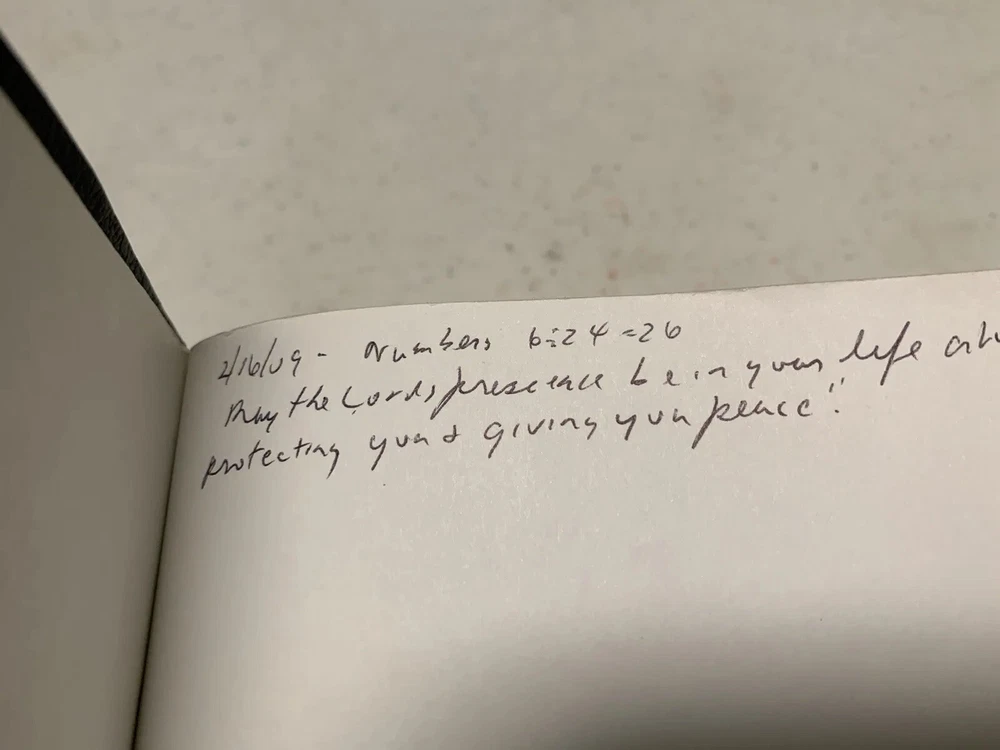 2/16/09 - Numbers 6:24-26
May the Lords presence be in your life
protecting you & giving you peace".